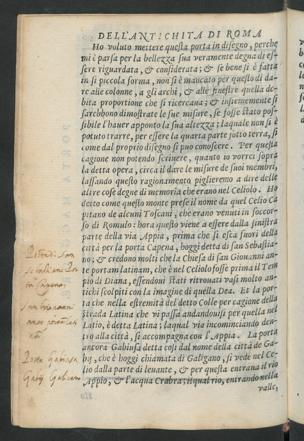 DELL'ANTICHITA DI ROMA
Ho voluto mettere questa porta in disegno, perche
mi è parsa per la bellezza sua veramente degna di es-
sere riguardata, & considerata; & se bene si è fatta
in sì piccola forma, non si è mancato per questo di da-
re alle colonne, a gli archi, & alle finestre quella de-
bita proportione che si ricercaua; & insiememente si
sarebbono dimostrate le sue misure, se fosse stato pos-
sibile l'hauer apponto la sua altezza; laquale non si è
potuto trarre, per essere la quarta parte sotto terra, sì
come dal proprio disegno si può conoscere. Per questa
cagione non potendo scriuere, quanto io vorrei sopra
la detta opera, circa il dare le misure de suoi membri,
lassando questo ragionamento piglieremo a dire delle
altre cose degne di memoria che erano nel Celiolo. Ho
detto come questo monte prese il nome da quel Celio Ca
pitano de alcuni Toscani, che erano venuti in soccor-
so di Romulo: hora questo viene a essere dalla sinistra
parte della via Appia, prima che si esca fuori della
città per la porta Capena, hoggi detta di san Sebastia-
no: & credono molti che la Chiesa di san Giouanni an-
te portam latinam, che è nel Celiolo fosse prima il Tem
pio di Diana, essendoui stati ritrouati vasi molto an-
tichi scolpiti con la imagine di quella Dea. Et la por-
ta che nella estremità del detto Colle per cagione della
strada Latina che vi passa andandouisi per quella nel
Latio, è detta Latina; laqual via incominciando den-
tro alla città, si accompagna con l'Appia. La porta
ancora Gabiusa detta così dal nome della città de Ga-
by, che è hoggi chiamata di Galigano, si vede nel Ce-
lio dalla parte di leuante, & per questa entraua il rio
Appio, & l'acqua Crabra; ilqual rio, entrando nella
valle,
Porta Gabiusa